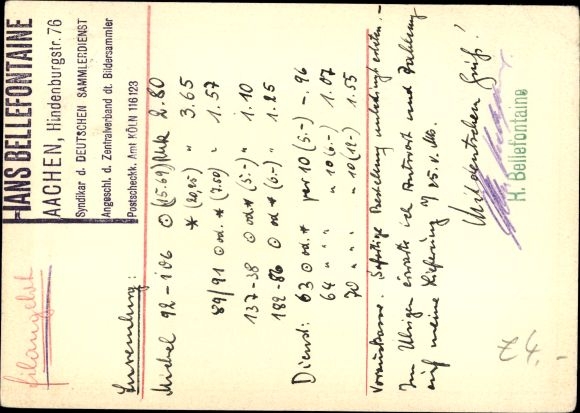 HANS BELLEFONTAINE
AACHEN, Hindenburgstr. 76
Syndikar d. DEUTSCHEN SAMMLERDIENST
Angeschl. d. Zentralverband dt. Bildersammler
Postscheckk. Amt KÖLN 116123
Michel 92-106 ⊙ (15.69) Rmk 2.80
* (20,25) " 3.65
89/91 ⊙ od. * (7.50) " 1.57
137-38 ⊙ od. * (5.-) " 1.10
182-86 ⊙ od. * (6.-) " 1.25
Dienst: 63 ⊙ od. * per 10 (5.-) -.96
64 " " " " 10 (6.-) 1.07
70 " " " " 10 (12.-) 1.55
Vorauskasse. Sofortige Bestellung unbedingt
Im Übrigen erwarte ich Antwort und Zahlung
auf meine Lieferung v. 25. v. Mts.
Mit deutschem Gruß!
H. Bellefontaine
4.-